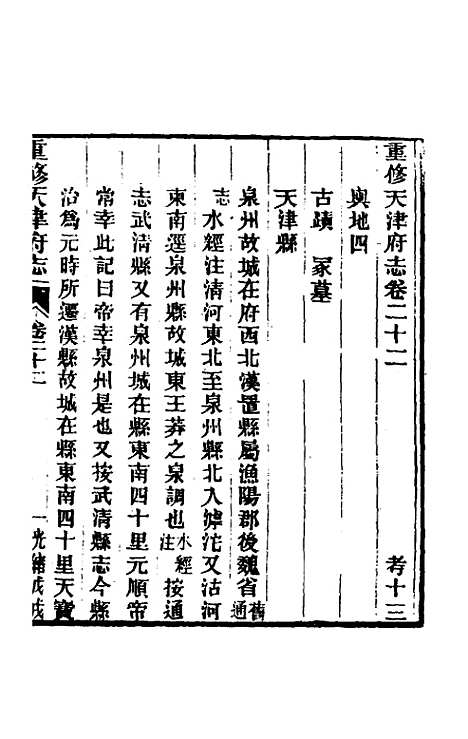 重修天津府志卷二十二 考十三
輿地四
古蹟 冢墓
天津縣
泉州故城在府西北漢置縣屬漁陽郡後魏省舊通
志水經注清河東北至泉州縣北入滹沱又沽河
東南逕泉州縣故城東王莽之泉調也水經注按通
志武清縣又有泉州城在縣東南四十里元順帝
常幸此記曰帝幸泉州是也又按武清縣志今縣
治爲元時所遷漢縣故城在縣東南四十里天寶
重修天津府志 卷二十二 一 光緒戊戌